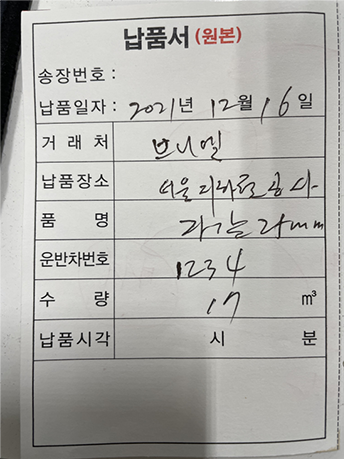 납품서 (원본)
송장번호 :
납품일자 : 2021년 12월 16일
거래처 브니엘
납품장소 서울
품명
운반차번호 1234
수량 17 m³
납품시각 시 분